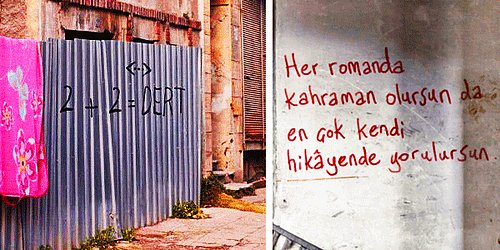 <-->
2 + 2 = DERT
Her romanda
kahraman olursun da
en çok kendi
hikâyende yorulursun.